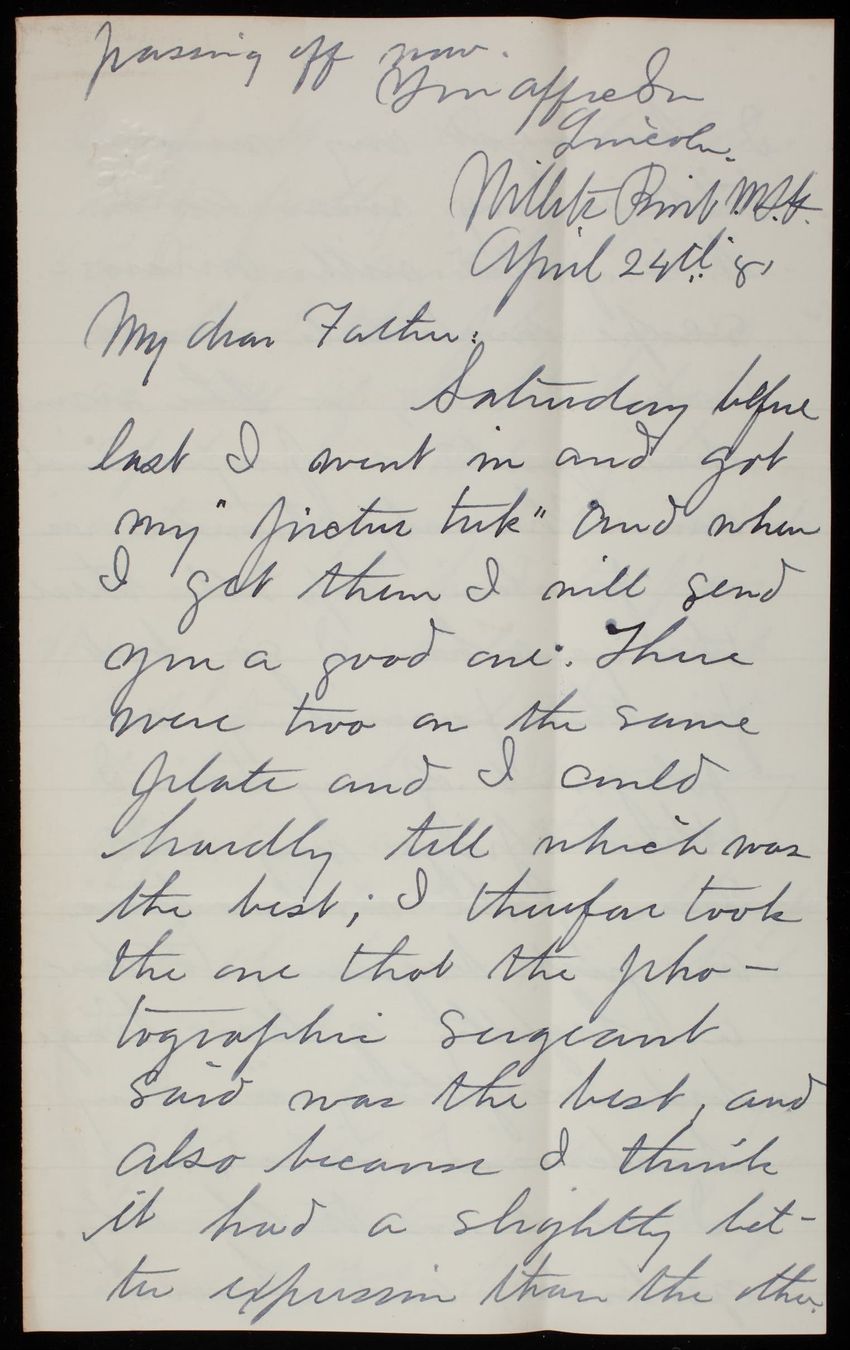 passing off now.
Your affec Son
Lincoln.
Willets Point N.Y.H.
April 24th 81
My dear Father:
Saturday before
last I went in and got
my "picture tuk" and when
I get them I will send
you a good one. There
were two on the same
plate and I could
hardly tell which was
the best; I therefore took
the one that the pho-
tographic sergeant
said was the best, and
also because I think
it had a slightly bet-
ter expression than the other.